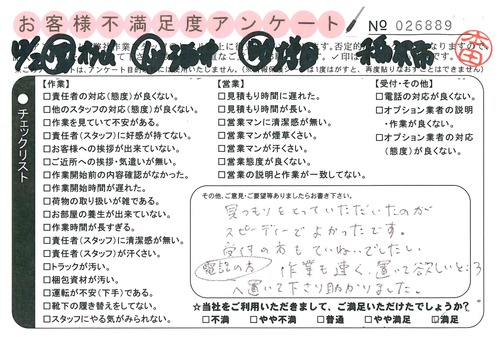 お客様不満足度アンケート
№ 026889
【作業】
□責任者の対応(態度)が良くない。
□他のスタッフの対応(態度)が良くない。
□作業を見ていて不安がある。
□責任者(スタッフ)に好感が持てない。
□お客様への挨拶が出来ていない。
□ご近所への挨拶・気遣いが無い。
□作業開始前の内容確認がなかった。
□作業開始時間が遅れた。
□荷物の取り扱いが雑である。
□お部屋の養生が出来ていない。
□作業時間が長すぎる。
□責任者(スタッフ)に清潔感が無い。
□責任者(スタッフ)が汗くさい。
□トラックが汚い。
□梱包資材が汚い。
□運転が不安(下手)である。
□靴下の履き替えをしてない。
□スタッフにやる気がみられない。
【営業】
□見積もり時間に遅れた。
□見積もり時間が長い。
□営業マンに清潔感が無い。
□営業マンが煙草くさい。
□営業マンが汗くさい。
□営業態度が良くない。
□営業の説明と作業が一致してない。
【受付・その他】
□電話の対応が良くない。
□オプション業者の説明
・作業が良くない。
□オプション業者の対応
(態度)が良くない。
チェックリスト
その他、ご意見・ご要望等ありましたらお書き下さい。
見つもりをとっていただいたのが
スピーディーでよかったです。
受付の方もていねいでしたし、
電話の方
作業も速く、置いて欲しいところ
へ置いて下さり助かりました。
☆当社をご利用いただきまして、ご満足いただけたでしょうか?
□不満 □やや不満 □普通 □やや満足 □満足